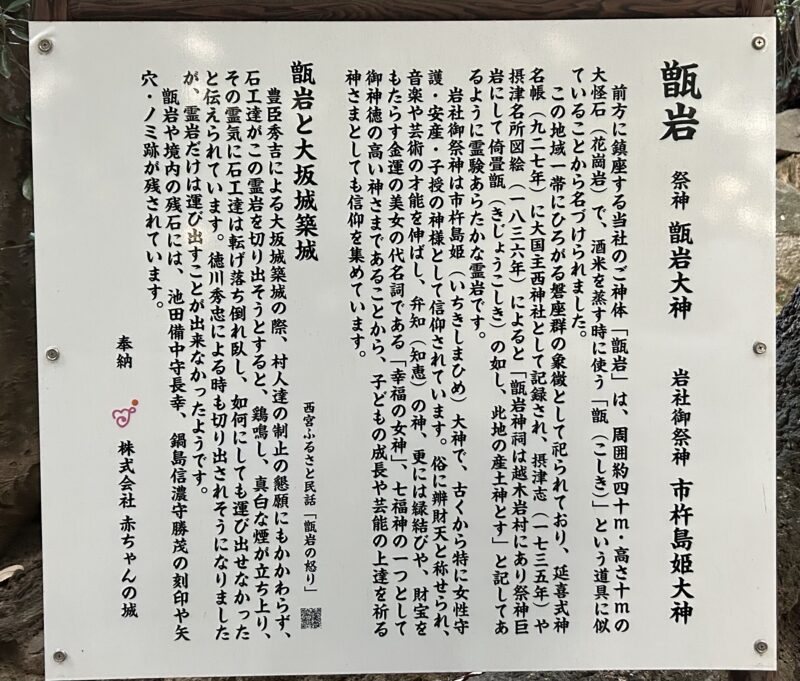 甑岩　祭神　甑岩大神　岩社御祭神　市杵島姫大神
前方に鎮座する当社のご神体「甑岩」は、周囲約四十ｍ・高さ十ｍの
大怪石（花崗岩）で、酒米を蒸す時に使う「甑（こしき）」という道具に似
ていることから名づけられました。
この地域一帯にひろがる磐座群の象徴として祀られており、延喜式神
名帳（九二七年）に大国主西神社として記録され、摂津志（一七三五年）や
摂津名所図絵（一八三六年）によると「甑岩神祠は越木岩村にあり祭神巨
岩にして倚畳甑（きじょうこしき）の如し、此地の産土神とす」と記してあ
るように霊験あらたかな霊岩です。
岩社御祭神は市杵島姫（いちきしまひめ）大神で、古くから特に女性守
護・安産・子授の神様として信仰されています。俗に辨財天と称せられ、
音楽や芸術の才能を伸ばし、弁知（知恵）の神、更には縁結びや、財宝を
もたらす金運の美女の代名詞である「幸福の女神」、七福神の一つとして
御神徳の高い神さまであることから、子どもの成長や芸能の上達を祈る
神さまとしても信仰を集めています。
甑岩と大坂城築城
西宮ふるさと民話「甑岩の怒り」
豊臣秀吉による大坂城築城の際、村人達の制止の懇願にもかかわらず、
石工達がこの霊岩を切り出そうとすると、鶏鳴し、真白な煙が立ち上り、
その霊気に石工達は転げ落ち倒れ臥し、如何にしても運び出せなかった
と伝えられています。徳川秀忠による時も切り出されそうになりました
が、霊岩だけは運び出すことが出来なかったようです。
甑岩や境内の残石には、池田備中守長幸、鍋島信濃守勝茂の刻印や矢
穴・ノミ跡が残されています。
奉納　株式会社 赤ちゃんの城